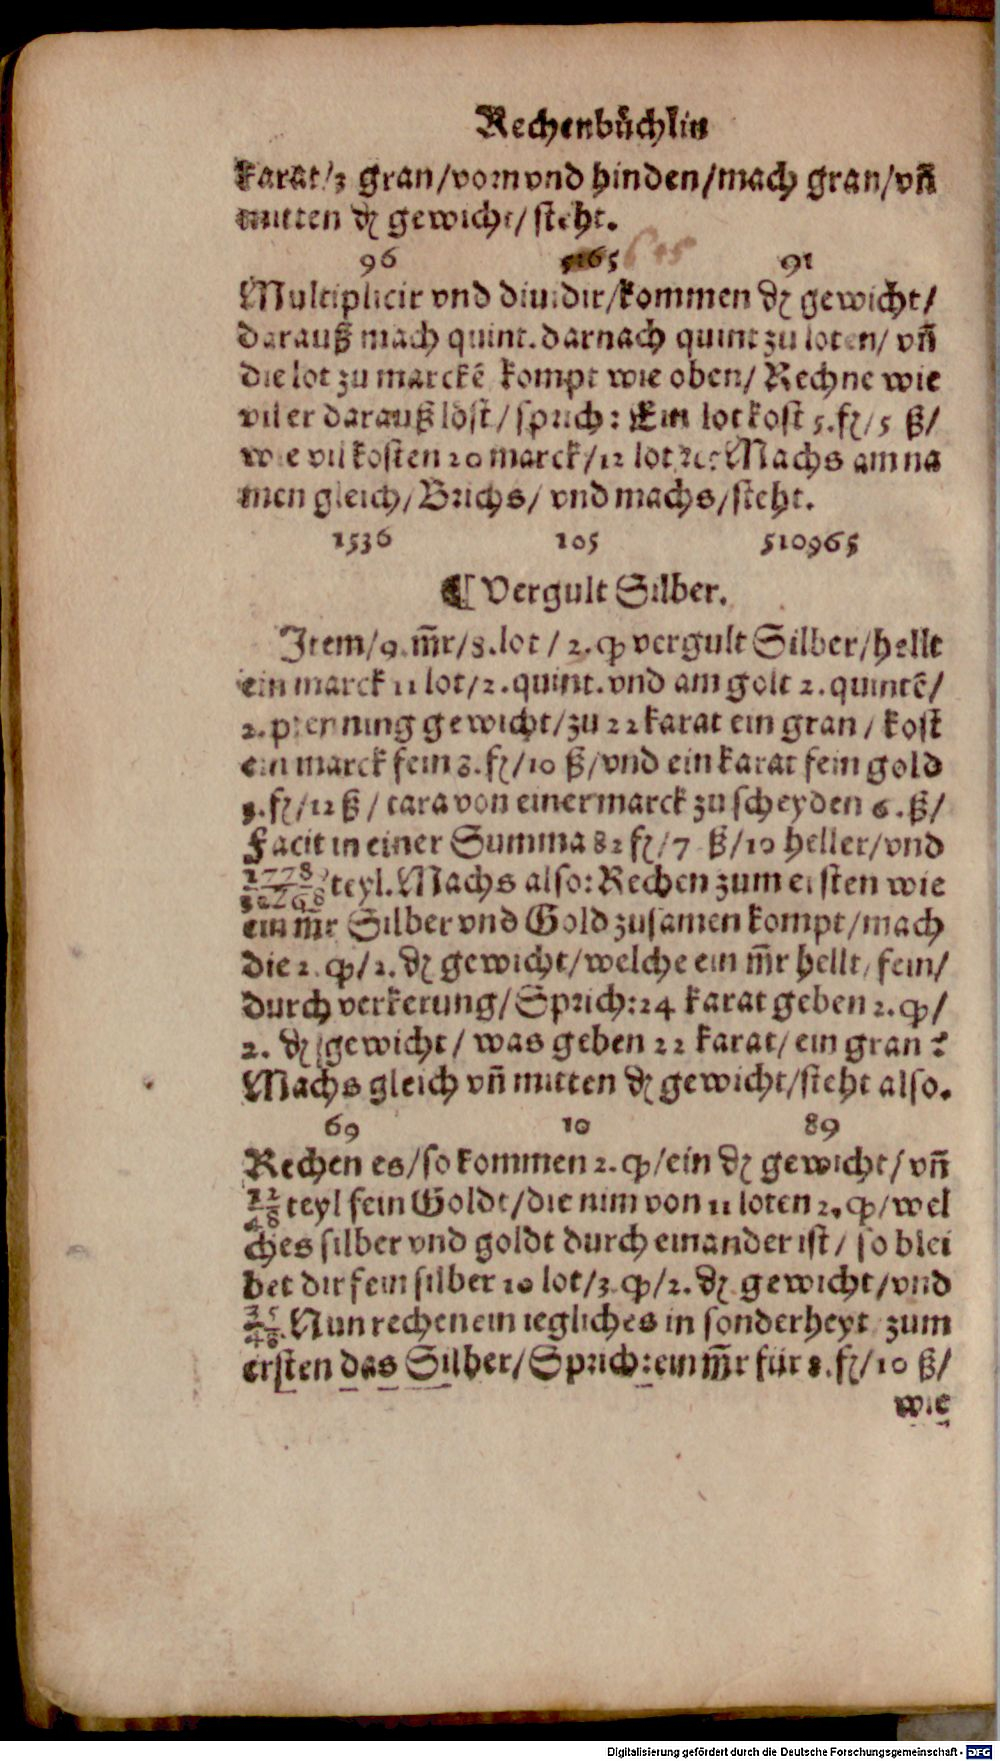 Rechenbuͤchlin
karat/3 gran/vorn vnd hinden/mach gran/vñ
mitten dẏ gewicht/steht.
96 5165 91
Multiplicir vnd diuidir/kommen dẏ gewicht/
darauß mach quint. darnach quint zu loten/ vñ
die lot zu marckẽ kompt wie oben/ Rechne wie
vil er darauß loͤst/ sprich: Ein lot kost 5.fl/5 ß/
wie vil kosten 20 marck/12 lot ꝛc? Machs am na
men gleich/ Brichs/ vnd machs/steht.
1536 105 510965
¶ Vergult Silber.
Item/9.m̃r/8.lot/2.qͥ vergult Silber/hellt
ein marck 11 lot/2.quint.vnd am golt 2.quintẽ/
2.pfenning gewicht/zu 22 karat ein gran/ kost
ein marck fein 8.fl/10 ß/vnd ein karat fein gold
3.fl/12 ß/ tara von einer marck zu scheyden 6.ß/
Facit in einer Summa 82 fl/7 ß/10 heller/vnd
teyl. Machs also: Rechen zum ersten wie
ein m̃r Silber vnd Gold zusamen kompt/mach
die 2.qͥ/2.dẏ gewicht/welche ein m̃r hellt/fein/
durch verkerung/Sprich:24 karat geben 2.qͥ/
2. dẏ gewicht/ was geben 22 karat/ ein gran?
Machs gleich vñ mitten dẏ gewicht/steht also.
69 10 89
Rechen es/so kommen 2.qͥ/ein dẏ gewicht/vñ
teyl fein Goldt/die nim von 11 loten 2.qͥ/wel
ches silber vnd goldt durch einander ist/ so blei
bet dir fein silber 10 lot/3.qͥ/2.dẏ gewicht/vnd
35/48. Nun rechen ein iegliches in sonderheyt zum
ersten das Silber/Sprich:ein m̃r für 8.fl/10 ß/
wie
Digitalisierung gefördert durch die Deutsche Forschungsgemeinschaft - DFG